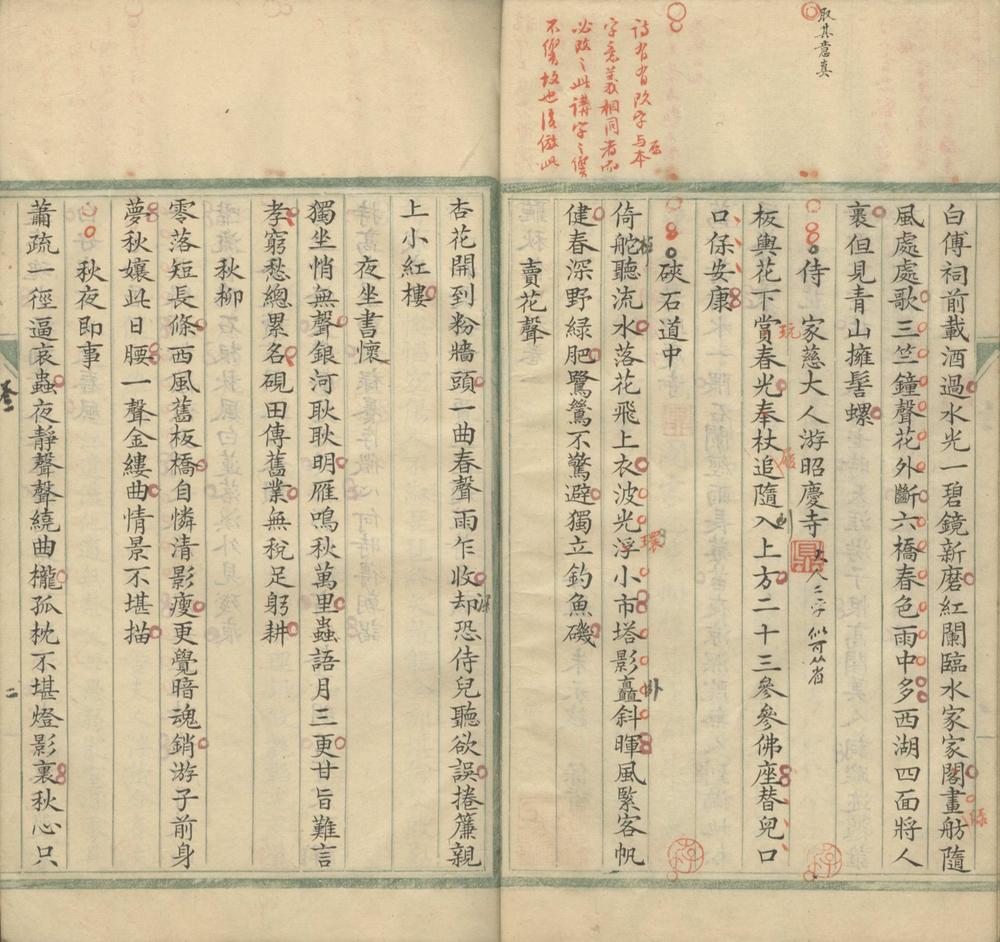 取其意真
詩有有改字与本
字意義相同者而
必改之此講字之響
不響故也後倣此
白傅祠前載酒過水光一碧鏡新磨紅闌臨水家家閣畫舫隨
風處處歌三竺鐘聲花外斷六橋春色雨中多西湖四面將人
裹但見青山擁髻螺
侍 家慈大人游昭慶寺
大人二字似可以省
板輿花下賞春光奉杖追隨入上方二十三參參佛座替兒口
玩
口保安康
硤石道中
倚舵聽流水落花飛上衣波光浮小市塔影矗斜暉風緊客帆
環
卧
健春深野綠肥鷺鷥不驚避獨立釣魚磯
賣花聲
杏花開到粉牆頭一曲春聲雨乍收却恐侍兒聽欲誤捲簾親
深
上小紅樓
夜坐書懷
獨坐悄無聲銀河耿耿明雁鳴秋萬里蟲語月三更甘旨難言
孝窮愁總累名硯田傳舊業無稅足躬耕
秋柳
零落短長條西風舊板橋自憐清影瘦更覺暗魂銷游子前身
夢秋孃此日腰一聲金縷曲情景不堪描
秋夜即事
蕭疏一徑逼哀蟲夜靜聲聲繞曲櫳孤枕不堪燈影裏秋心只
二